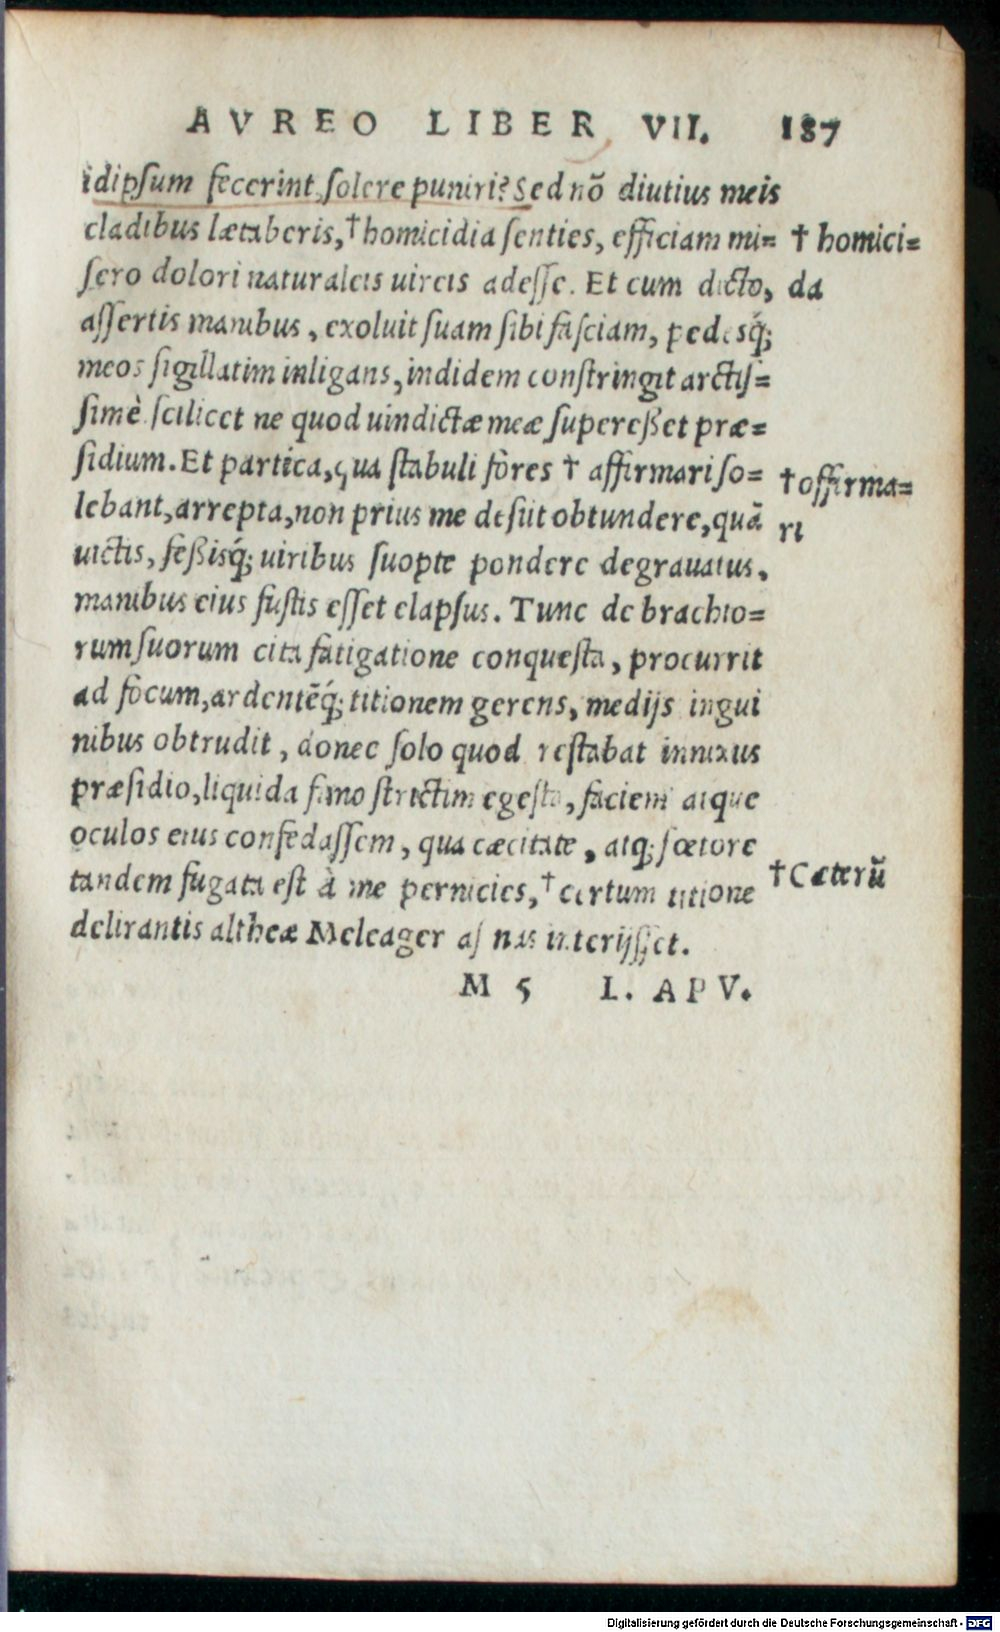 AVREO LIBER VII. 187
idipsum fecerint, solere puniri? Sed nõ diutius meis
cladibus lætaberis, † homicidia senties, efficiam mi= † homici=
sero dolori naturaleis uireis adesse. Et cum dicto, da
assertis manibus, exoluit suam sibi fasciam, pedesq́;
meos sigillatim inligans, indidem constringit arctis=
simè scilicet ne quod uindictæ meæ supereßet præ=
sidium. Et partica, qua stabuli fôres † affirmari so= † offirma=
lebant, arrepta, non prius me desiit obtundere, quã ri
uictis, feßisq́; uiribus suopte pondere degrauatus,
manibus eius fustis esset elapsus. Tunc de brachio=
rum suorum cita fatigatione conquesta, procurrit
ad focum, ardentẽq́; titionem gerens, medijs ingui
nibus obtrudit, donec solo quod restabat innixus
præsidio, liquida fimo strictim egesta, faciem atque
oculos eius confedassem, qua cæcitate, atq; fœtore
tandem fugata est à me pernicies, † certum titione † Cæterũ
delirantis altheæ Meleager asinus interijsset.
M 5 L. APV.
Digitalisierung gefördert durch die Deutsche Forschungsgemeinschaft - DFG